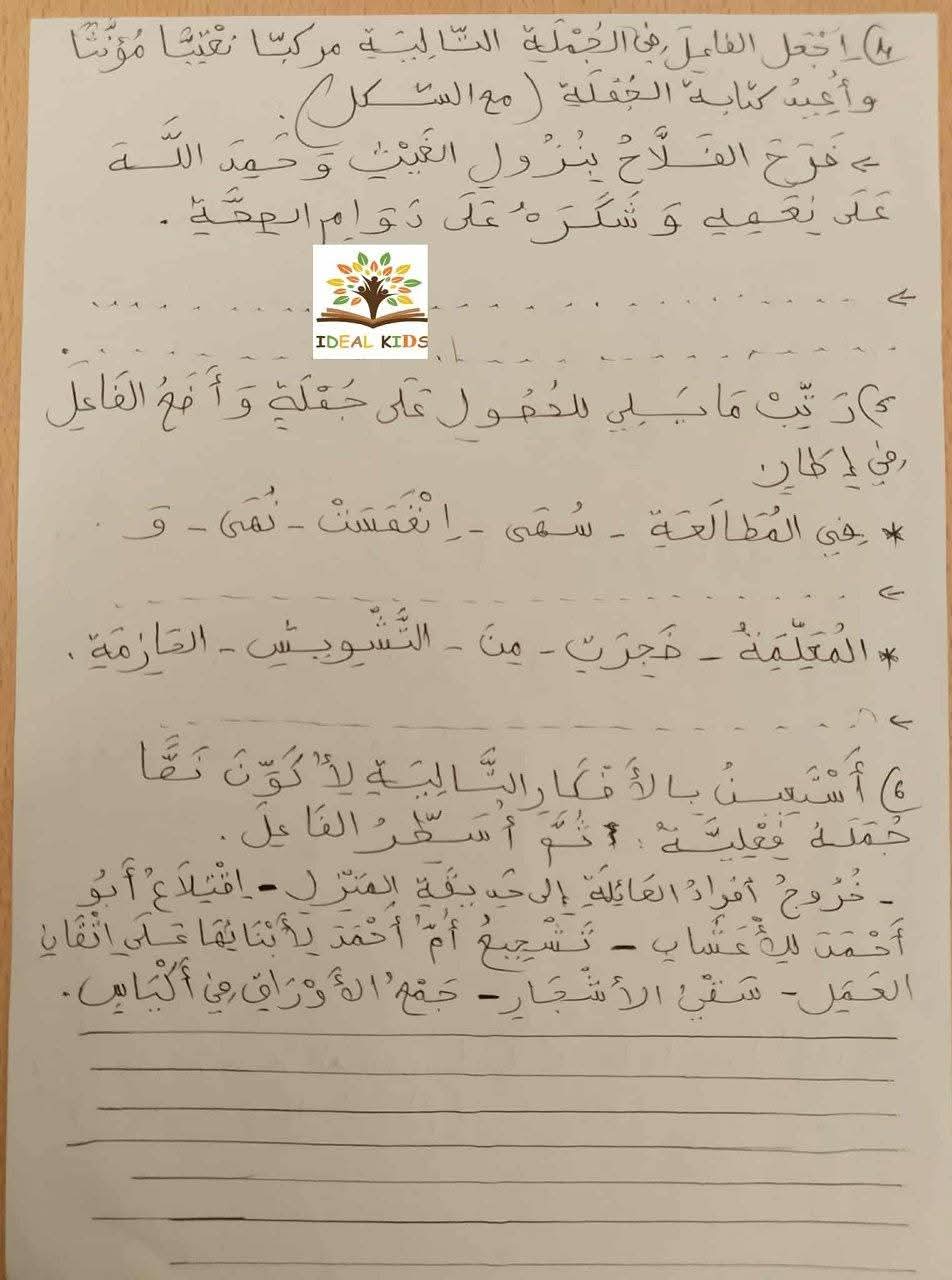 4) اِجْعَل الفاعِلَ فِي الجُمْلَةِ التَّالِيَةِ مركبًا نعْتِيًّا مُؤَنَّثًا
وأُعِيدُ كتابة الجُمْلَةِ (مع الشكل).
> فَرِحَ الفَلَّاحُ بِنُزُولِ الغَيْثِ وَحَمِدَ اللَّهَ
عَلَى نِعَمِهِ وَشَكَرَهُ عَلَى دَوَامِ الصِحَّةِ .
IDEAL KIDS
5) رَتِّبْ مَا يَلِي للحُصُولِ عَلَى جُمْلَةٍ وَأَضَعُ الفَاعِلَ
فِي إِطَارٍ
* فِي المُطَالَعَةِ - سُهَى - اِنْغَمَسَتْ - نُهَى - وَ
* المُعَلِّمَةُ - ضَجِرَتْ - مِنَ - التَّشْوِيشِ - الحَازِمَةُ .
6) أَسْتَعِينُ بِالأَفْكَارِ التَّالِيَةِ لِأُكَوِّنَ نَصًّا
جُمَلُهُ فِعْلِيَّةٌ : ثُمَّ أُسَطِّرُ الفَاعِلَ .
- خُرُوجُ أفرادُ العَائِلَةِ إلى حَدِيقَةِ المَنْزِلِ - اِقْتِلَاعُ أَبُو
أَحْمَدَ لِلأَعْشَابِ - تَشْجِيعُ أُمُّ أَحْمَدَ لِأَبْنَائِهَا عَلَى اتْقَانِ
العَمَلِ - سَقْيُ الأَشْجَارِ - جَمْعُ الأَوْرَاقِ فِي أَكْيَاسٍ .